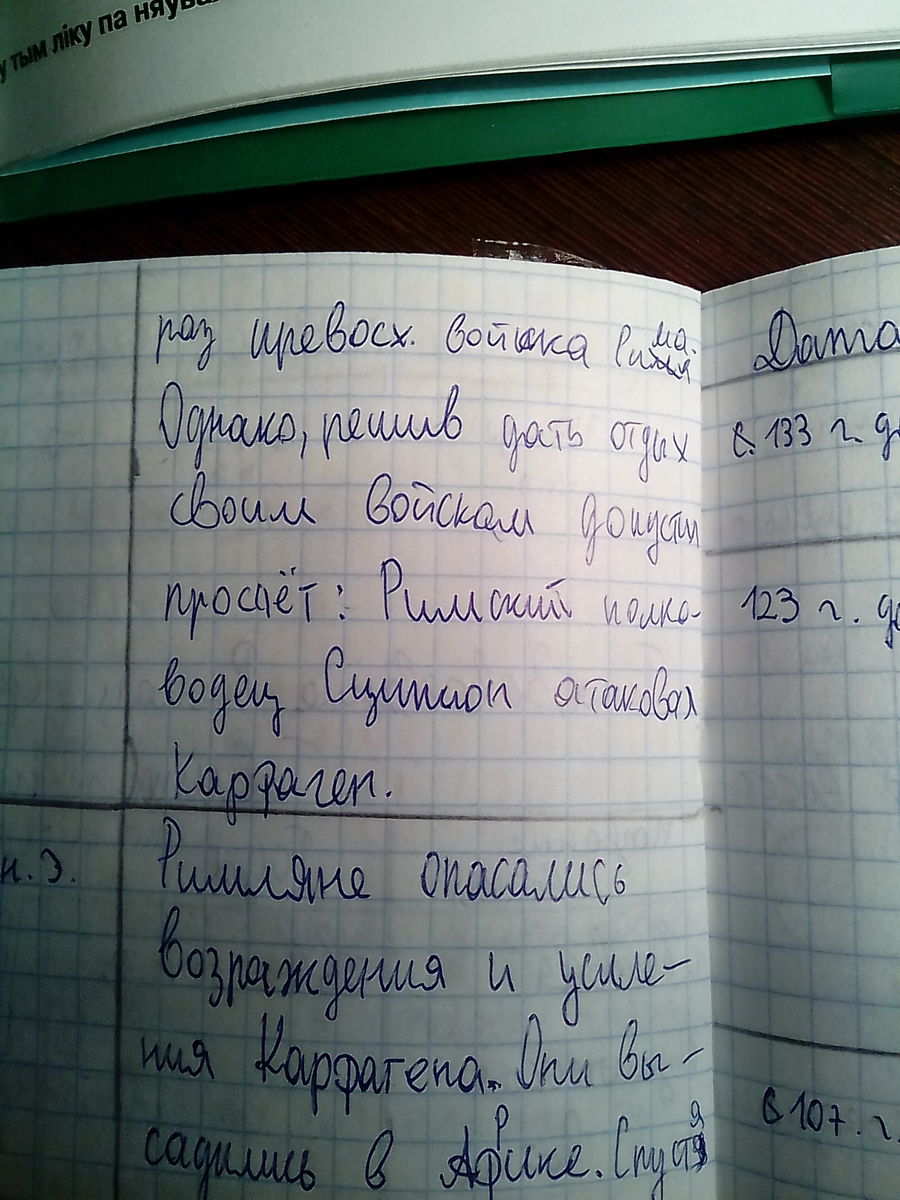 у тым ліку па няўва
раз превосх. войска Рима.
Однако, решив дать отдых
своим войскам допустил
просчёт: Римский полко-
водец Сципион атаковал
Карфаген.
н.э. Римляне опасались
возраждения и усиле-
ния Карфагена. Они вы-
садились в Африке. Спустя
Дата
в 133 г. до
123 г. до
в 107. г.